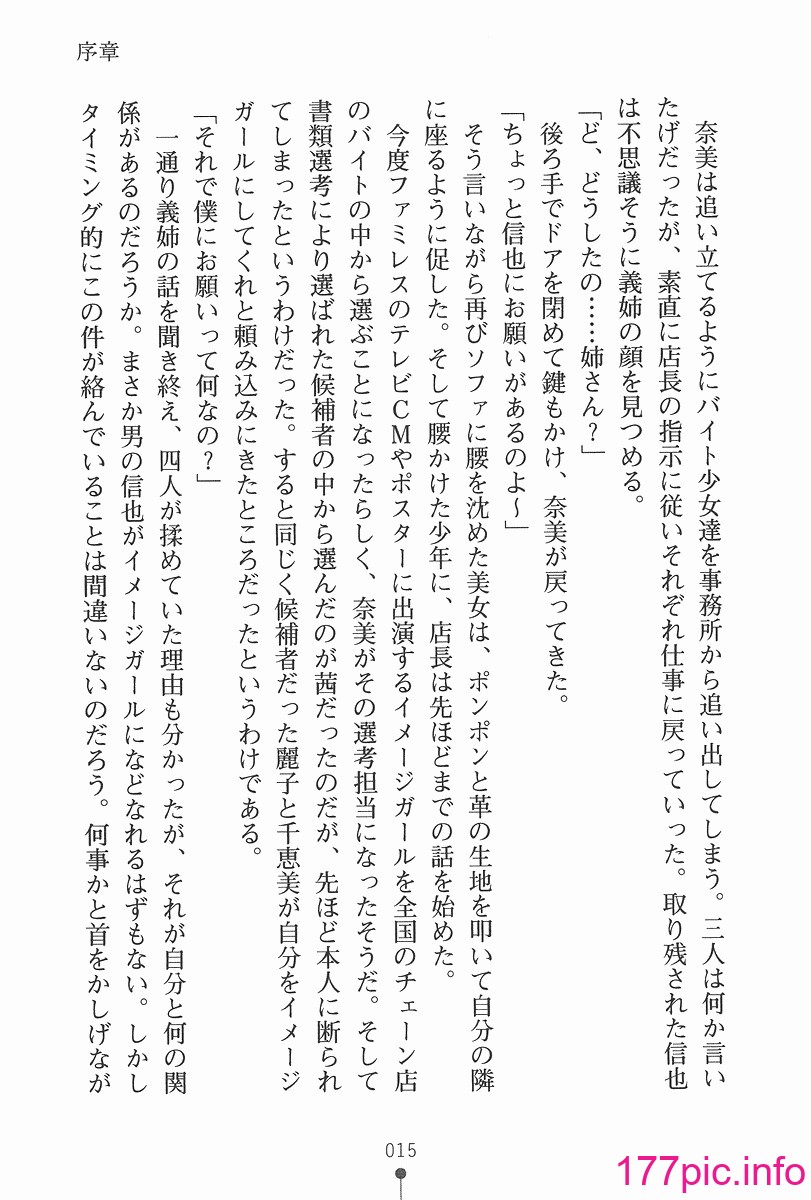 序章
奈美は追い立てるようにバイト少女達を事務所から追い出してしまう。三人は何か言い
たげだったが、素直に店長の指示に従いそれぞれ仕事に戻っていった。取り残された信也
は不思議そうに義姉の顔を見つめる。
「ど、どうしたの……姉さん？」
後ろ手でドアを閉めて鍵もかけ、奈美が戻ってきた。
「ちょっと信也にお願いがあるのよ～」
そう言いながら再びソファに腰を沈めた美女は、ポンポンと革の生地を叩いて自分の隣
に座るように促した。そして腰かけた少年に、店長は先ほどまでの話を始めた。
今度ファミレスのテレビＣＭやポスターに出演するイメージガールを全国のチェーン店
のバイトの中から選ぶことになったらしく、奈美がその選考担当になったそうだ。そして
書類選考により選ばれた候補者の中から選んだのが茜だったのだが、先ほど本人に断られ
てしまったというわけだった。すると同じく候補者だった麗子と千恵美が自分をイメージ
ガールにしてくれと頼み込みにきたところだったというわけである。
「それで僕にお願いって何なの？」
一通り義姉の話を聞き終え、四人が揉めていた理由も分かったが、それが自分と何の関
係があるのだろうか。まさか男の信也がイメージガールになどなれるはずもない。しかし
タイミング的にこの件が絡んでいることは間違いないのだろう。何事かと首をかしげなが
015
177pic.info